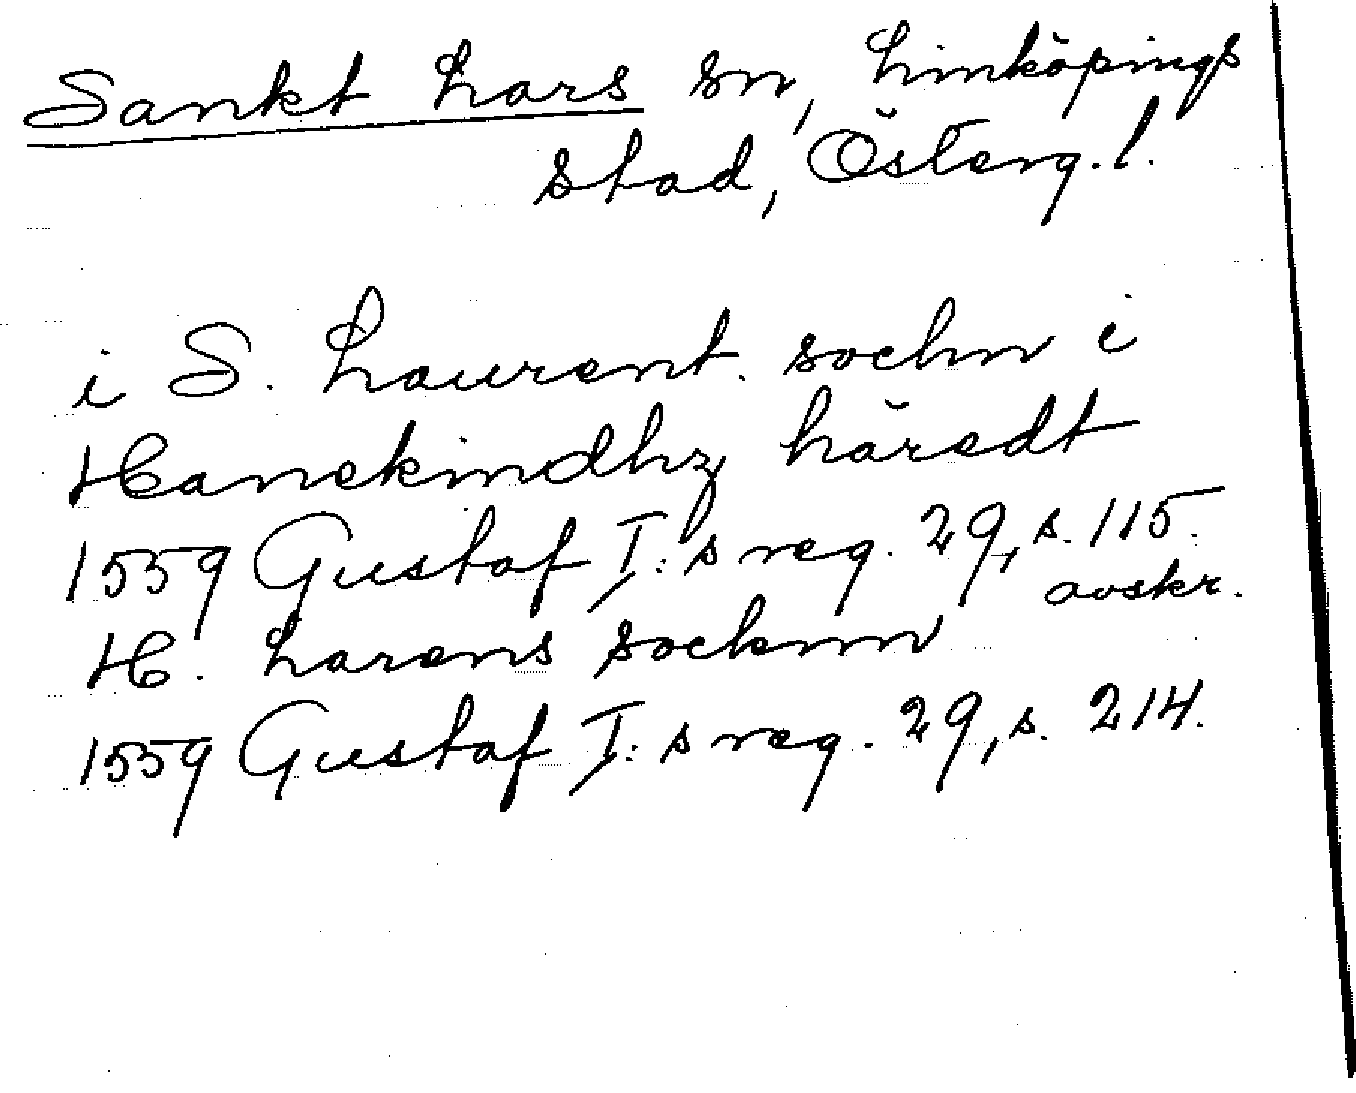 Sankt Lars sn, Linköpings
stad, Österg. l.
i S. Laurent. sochn i
Hanekindhz häredt
1559 Gustaf I:s reg. 29, s. 115.
avskr.
H. Larens socknn
1559 Gustaf I:s reg. 29, s. 214.